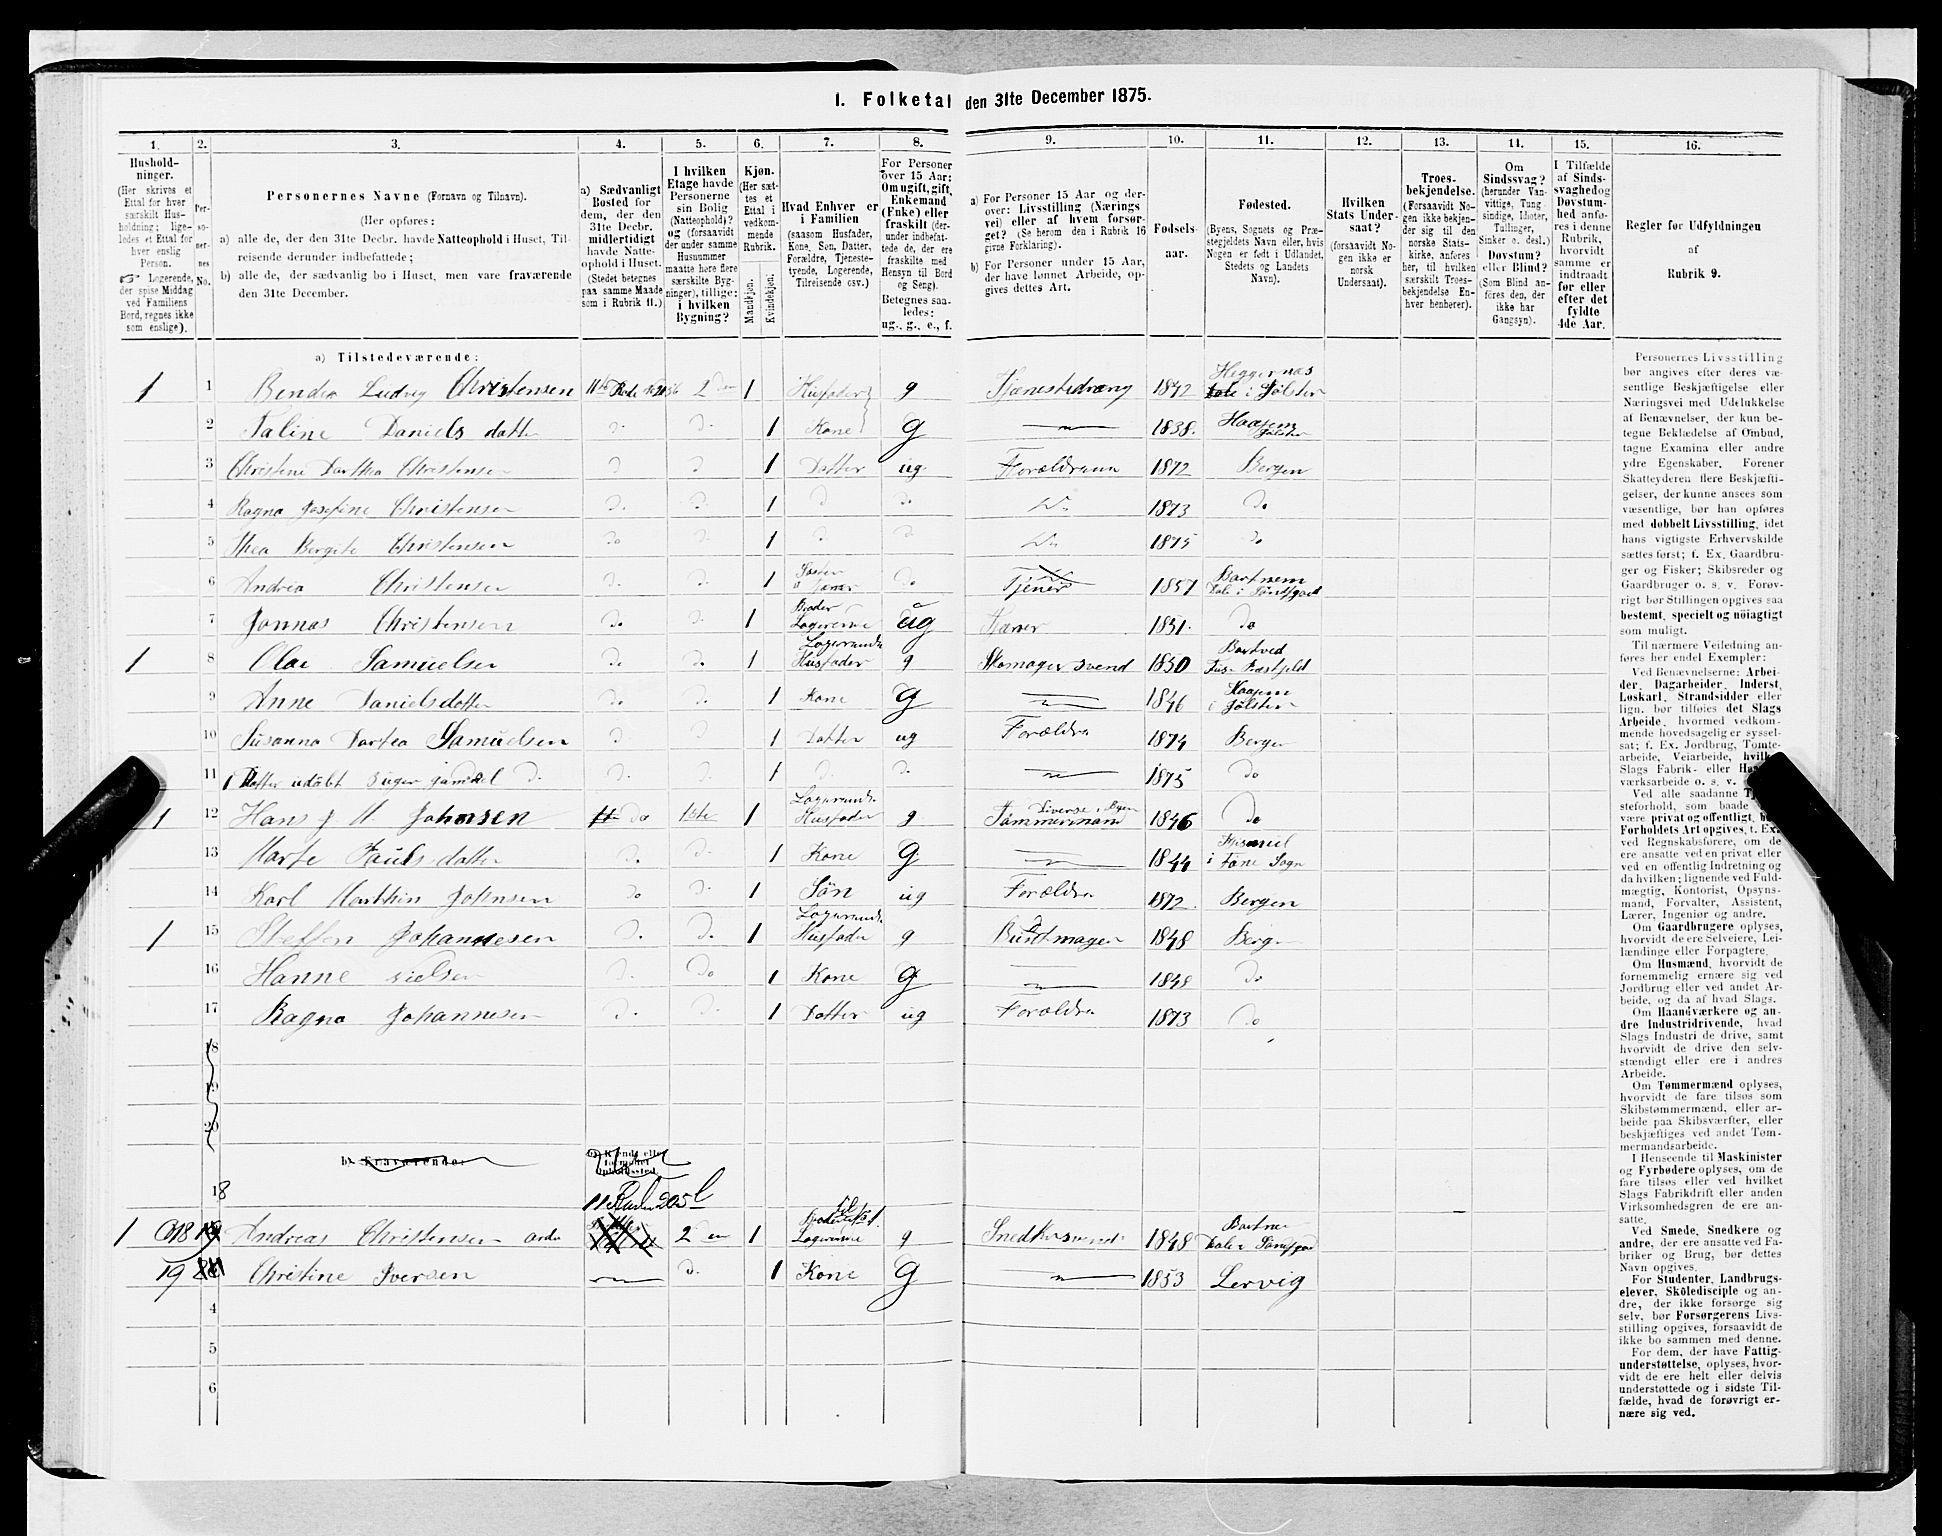 I. Folketal den 31te December 1875.
1. 2. 3. 4. 5. 6. 7. 8. 9. 10. 11. 12. 13. 14. 15. 16.
Hushold-
ninger.
(Her skrives et
Ettal for hver
særskilt Hus-
holdning; lige-
ledes et Ettal for
hver enslig
Person.
☞ Logerende,
der spise Middag
ved Familiens
Bord, regnes ikke
som enslige).
Per-
so-
ner-
nes
No.
Personernes Navne (Fornavn og Tilnavn).
(Her opføres:
a) alle de, der den 31te Decbr. havde Natteophold i Huset, Til-
reisende derunder indbefattede;
b) alle de, der sædvanlig bo i Huset, men vare fraværende
den 31te December.
a) Sædvanligt
Bosted for
dem, der den
31te Decbr.
midlertidigt
havde Natte-
ophold i Huset.
(Stedet betegnes
paa samme Maade
som i Rubrik 11.)
I hvilken
Etage havde
Personerne
sin Bolig
(Natteophold)?
og (forsaavidt
der under samme
Husnummer
maatte høre flere
særskilte Byg-
ninger), tillige:
i hvilken
Bygning?
Kjøn.
(Her sæt-
tes et
Ettal i
vedkom-
mende
Rubrik.
Mandkjøn.
Kvindekjøn.
Hvad Enhver er
i Familien
(saasom Husfader,
Kone, Søn, Datter,
Forældre, Tjeneste-
tyende, Logerende,
Tilreisende csv.)
For Personer
over 15 Aar:
Om ugift, gift,
Enkemand
(Enke) eller
fraskilt (der-
under indbefat-
tede de, der ere
fraskilte med
Hensyn til Bord
og Seng).
Betegnes saa-
ledes:
ug., g., e., f.
a) For Personer 15 Aar og der-
over: Livsstilling (Nærings
vei) eller af hvem forsør-
get? (Se herom den i Rubrik 16
givne Forklaring).
b) For Personer under 15 Aar,
der have lønnet Arbeide, op-
gives dettes Art.
Fødsels-
aar.
Fødested.
(Byens, Sognets og Præ-
stegjeldets Navn eller, hvis
Nogen er født i Udlandet,
Stedets og Landets
Navn).
Hvilken
Stats Under-
saat?
(forsaavidt No-
gen ikke er
norsk
Undersaat).
Troes-
bekjendelse.
(Forsaavidt No-
gen ikke bekjen-
der sig til den
norske Stats-
kirke, anføres
her, til hvilken
særskilt Troes-
bekjendelse En-
hver henhører).
Om
Sindssvag?
(herunder Van-
vittige, Tung-
sindige, Idioter,
Tullinger,
Sinker o. desl.)
Døvstum?
eller Blind?
(Som Blind an-
føres den, der
ikke har
Gangsyn).
I Tilfælde
af Sinds-
svaghed og
Døvstum-
hed anfø-
res i denne
Rubrik,
hvorvidt
samme er
indtraadt
før eller
efter det
fyldte
4de Aar.
Regler for Udfyldningen
af
Rubrik 9.
a) Tilstedeværende:
1 1 Ludvig Christensen 2den 1 Husfader g Tjenestedreng 1842 Heggernæs i Jølster
2 Taline Daniels datter do do 1 Kone g 1838. Haagem Jølster
3 Christine Dorthea Christensen do do 1 Datter ug Forældrene 1872 Bergen
4 Ragna Josefine Christensen do do 1 do do Do 1873 do
5 Thea Bergite Christensen do do 1 do do Do 1875 do
6 Andrea Christensen do do 1 Søster do Tjener 1857
7 Jonnas Christensen do do 1 Broder Logerende ug 1851. do
1 8 Olai Samuelsen do do 1 Logerende Husfader g Skomagersvend 1850
9 Anne Danielsdatter do do 1 Kone g 1846 Haagem i Jølster
10 Susanna Dortea Samuelsen do do 1 Datter ug Forældre 1874 Bergen
11 Datter udøbt do do do 1 do do 1875 do
1 12 Hans J. M Johnsen do 1ste 1 Logerende Husfader g Tømmermand 1846 do
13 Marte Pauls datter do do 1 Kone g 1844
14 Karl Marthin Johnsen do do 1 Søn ug Forældre 1872 Bergen
1 15 Steffen Johannesen do do 1 Logerende Husfader g Buntmager 1848 Bergen
16 Hanne Nielsen do do 1 Kone g 1848 do
17 Ragna Johannesen do do 1 Datter ug Forældre 1873 do
18
19
20
b) Fraværende:
18
1 18 Andreas Christensen 2den 1 Logerende g Snedkersvend 1848
19 Christine Iversen do 1 Kone g 1853 Lervig
4
5
6
Personernes Livsstilling
bør angives efter deres væ-
sentlige Beskjæftigelse eller
Næringsvei med Udelukkelse
af Benævnelser, der kun be-
tegne Beklædelse af Ombud,
tagne Examina eller andre
ydre Egenskaber. Forener
Skatteyderen flere Beskjæfti-
gelser, der kunne ansees som
væsentlige, bør han opføres
med dobbelt Livsstilling, idet
hans vigtigste Erhvervskilde
sættes først; f. Ex. Gaardbru-
ger og Fisker; Skibsreder og
Gaardbruger o. s. v. Forøv-
rigt bør Stillingen opgives saa
bestemt, specielt og nöiagtigt
som muligt.
Til nærmere Veiledning an-
føres her endel Exempler:
Ved Benævnelserne: Arbei-
der, Dagarbeider, Inderst,
Løskarl, Strandsidder eller
lign. bør tilføies det Slags
Arbeide, hvormed vedkom-
mende hovedsagelig er syssel-
sat; f. Ex. Jordbrug, Tomte-
arbeide, Veiarbeide, hvilket
Slags Fabrik- eller
værksarbeide o. s. v.
Ved alle saadanne
steforhold, som baade
være privat og offentligt,
Forholdets Art opgives, t. Ex.
ved Regnskabsførere, om de
ere ansatte ved en privat eller
ved en offentlig Indretning og
da hvilken; lignende ved Fuld-
mægtig, Kontorist, Opsyns-
mand, Forvalter, Assistent,
Lærer, Ingeniør og andre.
Om Gaardbrugere oplyses,
hvorvidt de ere Selveiere, Lei-
lændinge eller Forpagtere.
Om Husmænd, hvorvidt de
fornemmelig ernære sig ved
Jordbrug eller ved andet Ar-
beide, og da af hvad Slags.
Om Haandværkere og an-
dre Industridrivende, hvad
Slags Industri de drive, samt
hvorvidt de drive den selv-
stændigt eller ere i andres
Arbeide.
Om Tømmermænd oplyses,
hvorvidt de fare tilsøs som
Skibstømmermænd, eller ar-
beide paa Skibsværfter, eller
beskjæftiges ved andet Tøm-
mermandsarbeide.
I Henseende til Maskinister
og Fyrbødere oplyses, om de
fare tilsøs eller ved hvilket
Slags Fabrikdrift eller anden
Virksomhedsgren de ere an-
satte.
Ved Smede, Snedkere og
andre, der ere ansatte ved Fa-
briker og Brug, bør dettes
Navn opgives.
For Studenter, Landbrugs-
elever, Skoledisciple og an-
dre, der ikke forsørge sig
selv, bør Forsørgerens Livs-
stilling opgives, forsaavidt de
ikke bo sammen med denne.
For dem, der have Fattig-
understøttelse, oplyses, hvor-
vidt de ere helt eller delvis
understøttede og i sidste Til-
fælde, hvad de forøvrigt er-
nære sig ved.